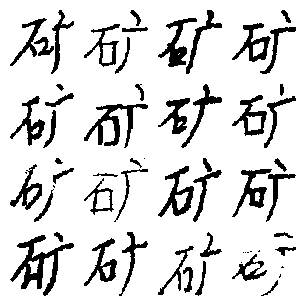 矿矿矿矿
矿矿矿矿
矿矿矿矿
矿矿矿矿